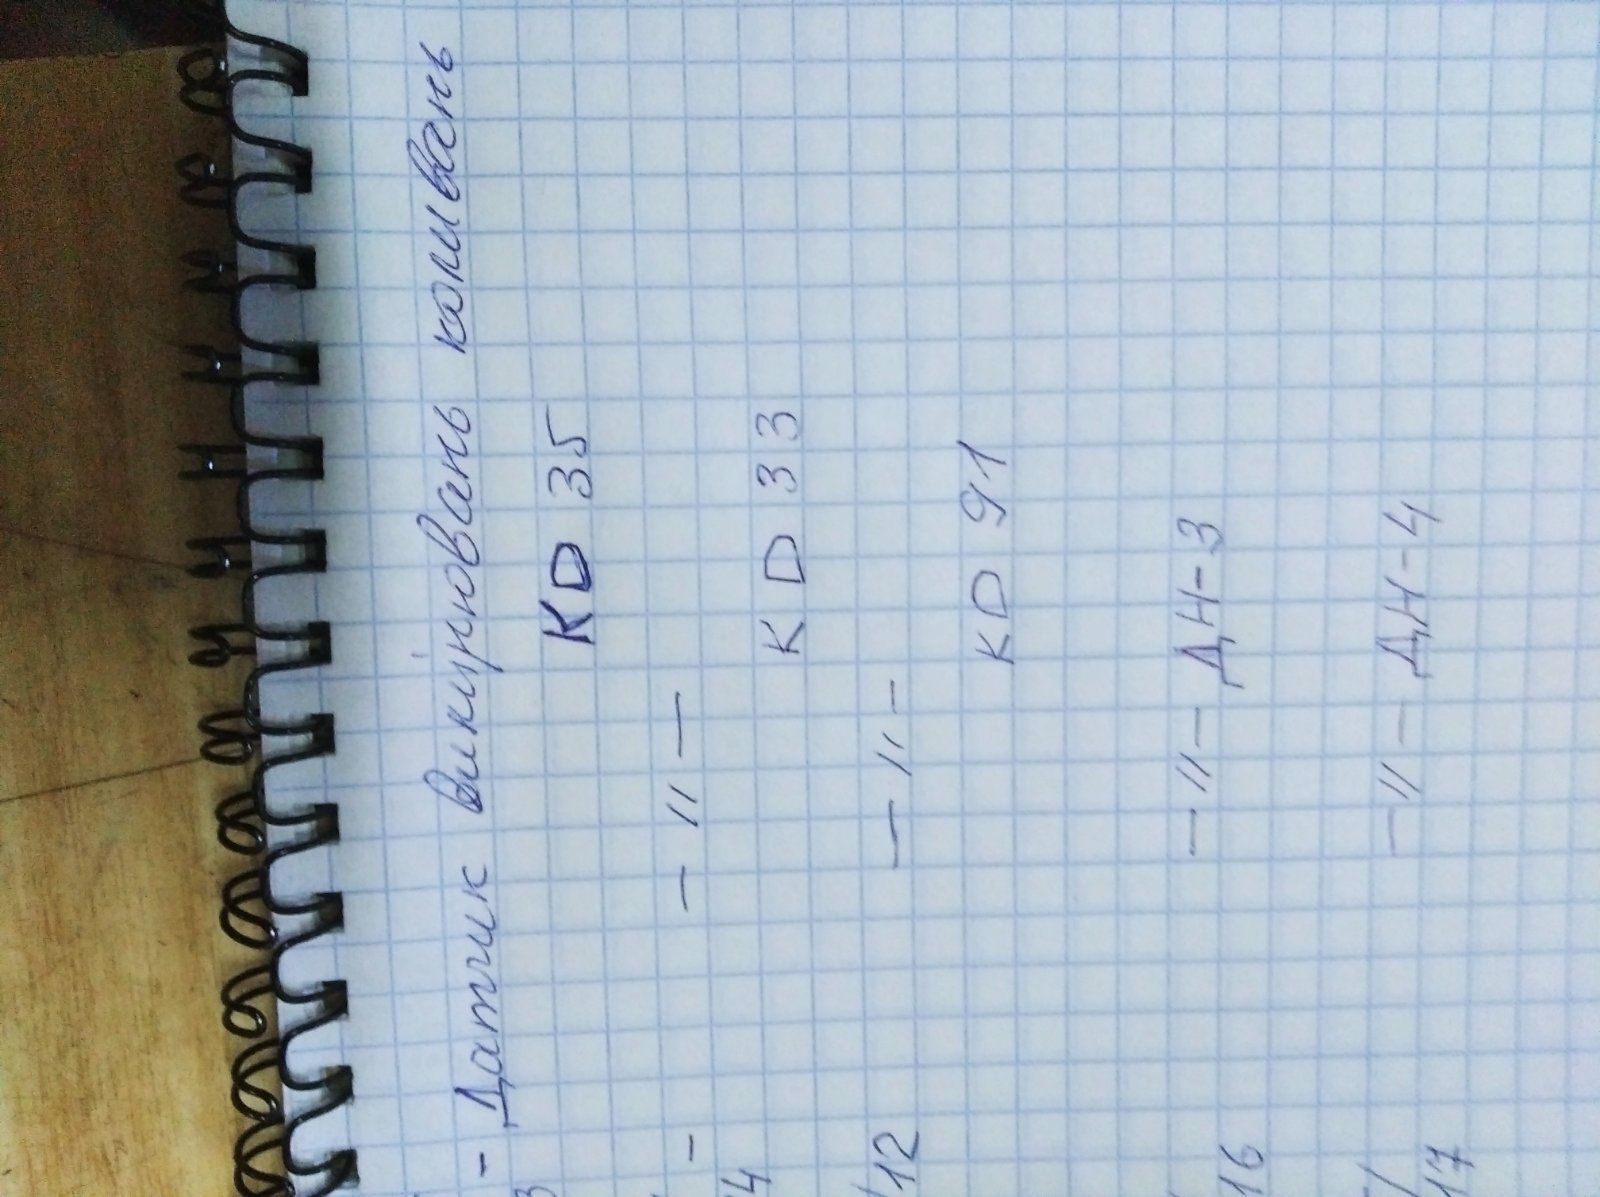 - Датчик викиџновань коливань
3 KD 35
- - " -
4 KD 33
- " -
/12 KD 91
16 - " - ДН-3
/
17 - " - ДН-4